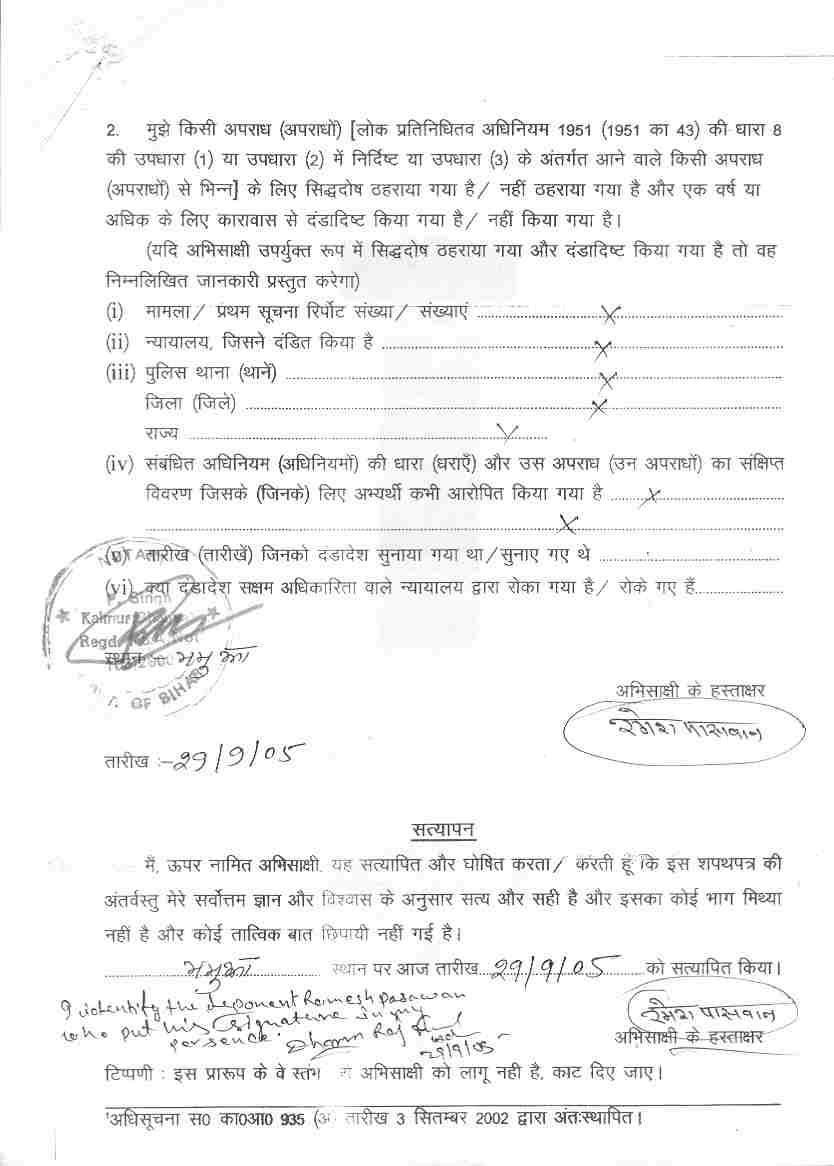 2. मुझे किसी अपराध (अपराधों) [लोक प्रतिनिधितव अधिनियम 1951 (1951 का 43) की धारा 8
की उपधारा (1) या उपधारा (2) में निर्दिष्ट या उपधारा (3) के अंतर्गत आने वाले किसी अपराध
(अपराधों) से भिन्न] के लिए सिद्धदोष ठहराया गया है / नहीं ठहराया गया है और एक वर्ष या
अधिक के लिए कारावास से दंडादिष्ट किया गया है / नहीं किया गया है।
(यदि अभिसाक्षी उपर्युक्त रूप में सिद्धदोष ठहराया गया और दंडादिष्ट किया गया है तो वह
निम्नलिखित जानकारी प्रस्तुत करेगा)
(i) मामला / प्रथम सूचना रिर्पोट संख्या / संख्याएं ........ X ........
(ii) न्यायालय, जिसने दंडित किया है ........ X ........
(iii) पुलिस थाना (थानें) ........ X ........
जिला (जिले) ........ X ........
राज्य ........ X ........
(iv) संबंधित अधिनियम (अधिनियमों) की धारा (धराएँ) और उस अपराध (उन अपराधों) का संक्षिप्त
विवरण जिसके (जिनके) लिए अभ्यर्थी कभी आरोपित किया गया है ........ X ........
........ X ........
(v) तारीख (तारीखें) जिनको दंडादेश सुनाया गया था / सुनाए गए थे ........
(vi) क्या दंडादेश सक्षम अधिकारिता वाले न्यायालय द्वारा रोका गया है / रोके गए हैं........
Singh
Kaimur
Regd.
OF BIHAR
स्थान :- भभुआ
अभिसाक्षी के हस्ताक्षर
रमेश पासवान
तारीख :- 29/9/05
सत्यापन
मैं, ऊपर नामित अभिसाक्षी, यह सत्यापित और घोषित करता / करती हूँ कि इस शपथपत्र की
अंतर्वस्तु मेरे सर्वोत्तम ज्ञान और विश्वास के अनुसार सत्य और सही है और इसका कोई भाग मिथ्या
नहीं है और कोई तात्विक बात छिपायी नहीं गई है।
........ भभुआ ........ स्थान पर आज तारीख.... 29/9/05 ........को सत्यापित किया।
I identify the deponent Ramesh pasawan
who put his signature in my
persence.
29/9/05
रमेश पासवान
अभिसाक्षी के हस्ताक्षर
टिप्पणी : इस प्रारूप के वे स्तंभ अभिसाक्षी को लागू नही है, काट दिए जाए।
¹अधिसूचना स0 का0आ0 935 (अ तारीख 3 सितम्बर 2002 द्वारा अंतःस्थापित।